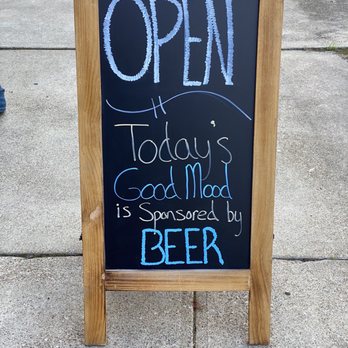 OPEN
Today's
Good Mood
is Sponsored by
BEER